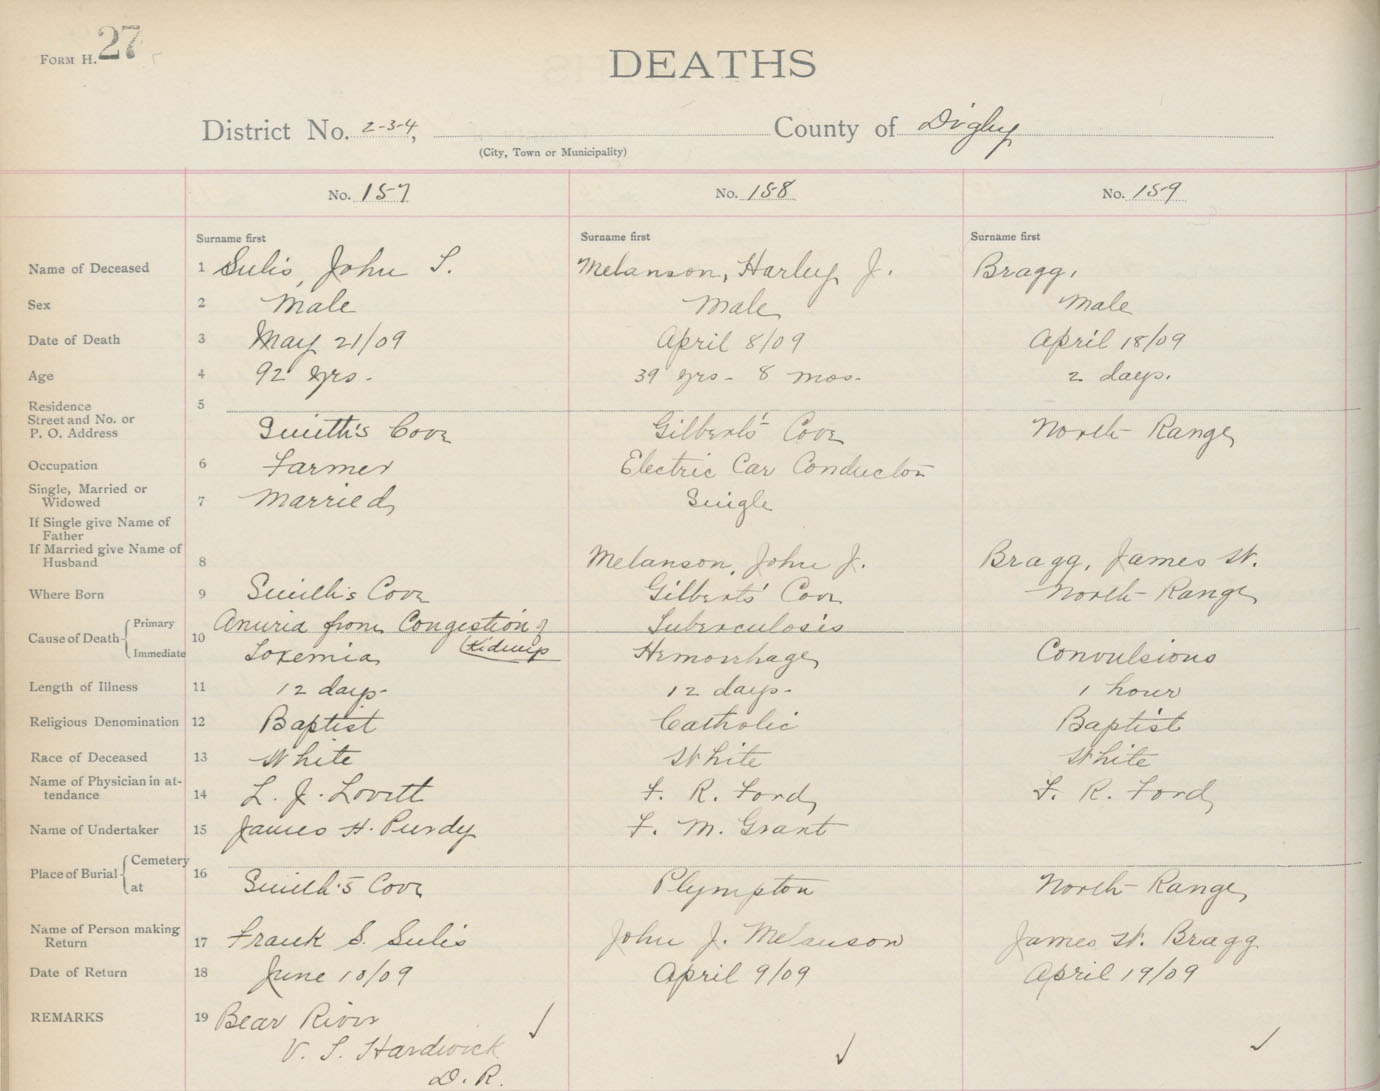 FORM H. 27
DEATHS
District No. 2-3-4, County of Digby
(City, Town or Municipality)
No. 157 No. 158 No. 159
Surname first Surname first Surname first
Name of Deceased 1 Sulis, John S. Melanson, Harley J. Bragg,
Sex 2 Male Male Male
Date of Death 3 May 21/09 April 8/09 April 18/09
Age 4 92 yrs- 39 yrs- 8 mos- 2 days.
Residence 5
Street and No. or
P. O. Address Smith's Cove Gilberts' Cove North Range
Occupation 6 Farmer Electric Car Conductor
Single, Married or
Widowed 7 Married Single
If Single give Name of
Father
If Married give Name of
Husband 8 Melanson, John J. Bragg, James W.
Where Born 9 Smith's Cove Gilberts' Cove North Range
Cause of Death Primary 10 Anuria from Congestion of Kidneys Tuberculosis
Immediate Toxemia Hemorrhage Convulsions
Length of Illness 11 12 days- 12 days- 1 hour
Religious Denomination 12 Baptist Catholic Baptist
Race of Deceased 13 White White White
Name of Physician in at-
tendance 14 L. J. Lovitt F. R. Ford F. R. Ford
Name of Undertaker 15 James H. Purdy F. M. Grant
Place of Burial Cemetery 16
at Smith's Cove Plympton North Range
Name of Person making
Return 17 Frank S. Sulis John J. Melanson James W. Bragg
Date of Return 18 June 10/09 April 9/09 April 19/09
REMARKS 19 Bear River
V. S. Hardwick
D. R.